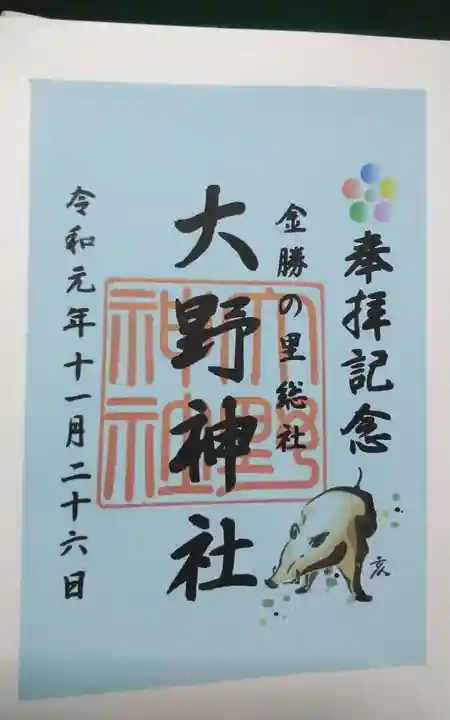 奉拝記念
金勝の里総社
大野神社
大野
神社
令和元年十一月二十六日
亥